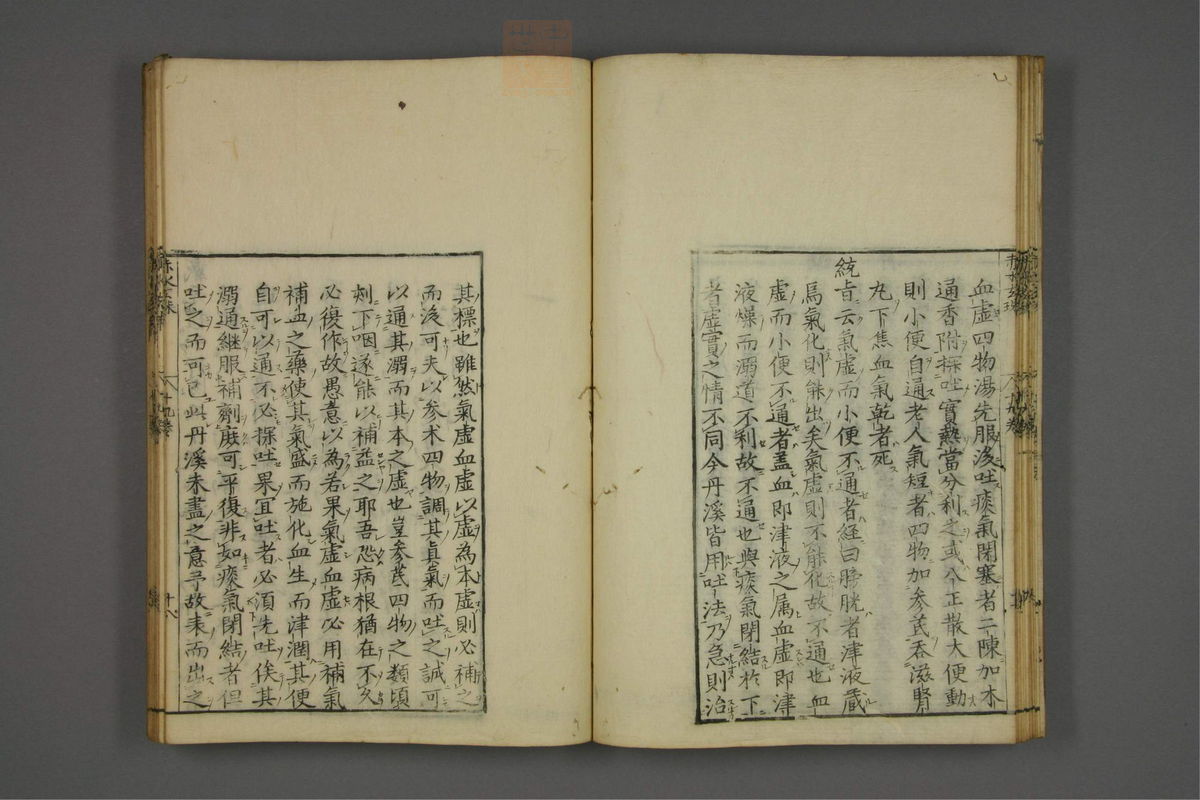 血虛四物湯先服後吐痰氣閉塞者二陳加木
通香附探吐實熱當分利之或八正散大便動
則小便自通老人氣短者四物加参芪吞滋腎
丸下焦血氣乾者死
統旨云氣虛而小便不通者経曰膀胱者津液藏
焉氣化則能出矣氣虛則不能化故不通也血
虛而小便不通者蓋血即津液之属血虛即津
液燥而溺道不利故不通也與痰氣閉結於下
者虛實之情不同今丹溪皆用吐法乃急則治
其標也雖然氣虛血虛以虛為本虛則必補之
而後可夫以参术四物調其真氣而吐之誠可
以通其溺而其本之虛也豈参芪四物之類頃
刻下咽遂能以補益之耶吾恐病根猶在不久
必復作故愚意以為若果氣虛血虛必用補氣
補血之藥使其氣盛而施化血生而津潤其便
自可以通不必探吐果宜吐者必須先吐俟其
溺通継服補劑庻可平復非如痰氣閉結者但
吐之而可已此丹溪未盡之意予故表而出之
十九卷
十八